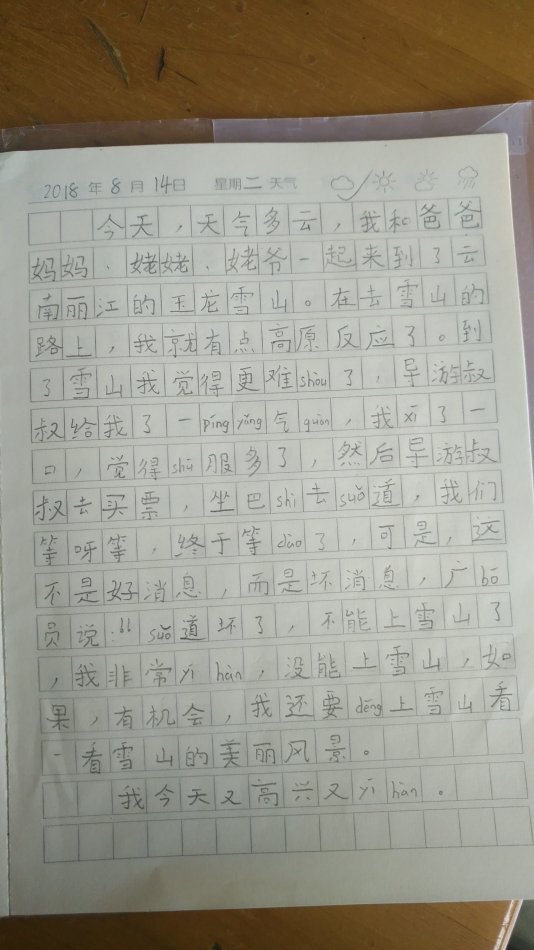 2018 年 8 月 14日 星期二 天气
今天，天气多云，我和爸爸
妈妈、姥姥、姥爷一起来到了云
南丽江的玉龙雪山。在去雪山的
路上，我就有点高原反应了。到
了雪山我觉得更难shòu了，导游叔
叔给我了一píng yǎng气guàn，我xī了一
口，觉得shū服多了，然后导游叔
叔去买票，坐巴shì去suǒ道，我们
等呀等，终于等dào了，可是，这
不是好消息，而是坏消息，广bō
员说：“suǒ道坏了，不能上雪山了
，我非常yí hàn，没能上雪山，如
果，有机会，我还要dēng上雪山看
一看雪山的美丽风景。
我今天又高兴又yí hàn。